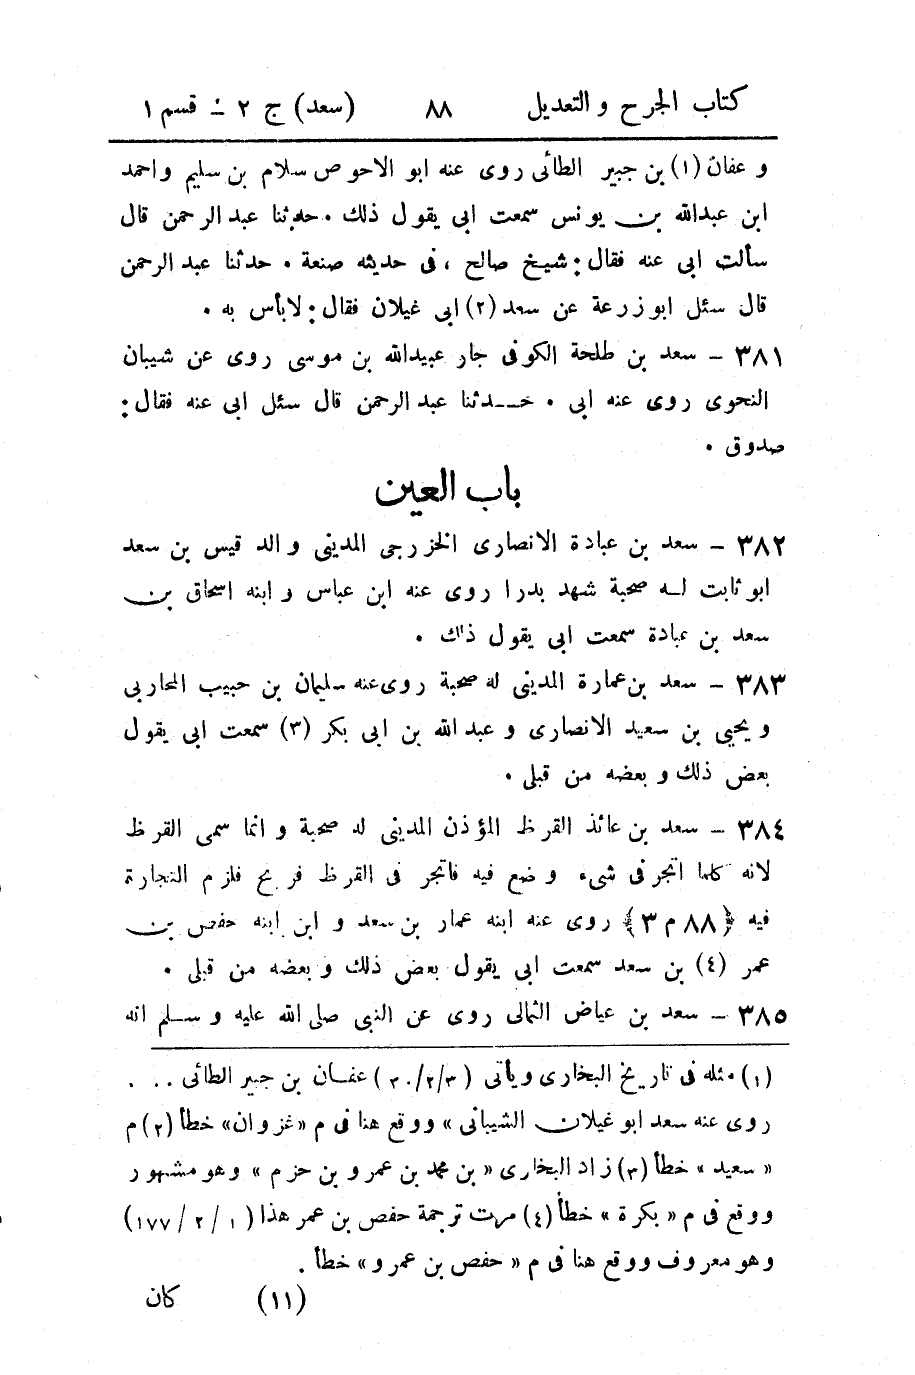 كتاب الجرح والتعديل ٨٨ (سعد) ج ٢ - قسم ١
و عفان (١) بن جبير الطائى روى عنه ابو الاحوص سلام بن سليم واحمد
ابن عبدالله بن يونس سمعت ابى يقول ذلك . حدثنا عبد الرحمن قال
سألت ابى عنه فقال : شيخ صالح ، فى حديثه صنعة . حدثنا عبد الرحمن
قال سئل ابو زرعة عن سعد (٢) ابى غيلان فقال : لا بأس به .
٣٨١ - سعد بن طلحة الكوفى جار عبيدالله بن موسى روى عن شيبان
النحوى روى عنه ابى . حدثنا عبد الرحمن قال سئل ابى عنه فقال :
صدوق .
باب العين
٣٨٢ - سعد بن عبادة الانصارى الخزرجى المدينى والد قيس بن سعد
ابو ثابت له صحبة شهد بدرا روى عنه ابن عباس وابنه اسحاق بن
سعد بن عبادة سمعت ابى يقول ذلك .
٣٨٣ - سعد بن عمارة المدينى له صحبة روى عنه سليمان بن حبيب المحاربى
و يحيى بن سعيد الانصارى و عبد الله بن ابى بكر (٣) سمعت ابى يقول
بعض ذلك و بعضه من قبلى .
٣٨٤ - سعد بن عائذ القرظ المؤذن المدينى له صحبة و انما سمى القرظ
لانه كلما اتجر فى شىء وضع فيه فاتجر فى القرظ فربح فلزم التجارة
فيه ﴿٨٨ م ٣﴾ روى عنه ابنه عمار بن سعد و ابن ابنه حفص بن
عمر (٤) بن سعد سمعت ابى يقول بعض ذلك و بعضه من قبلى .
٣٨٥ - سعد بن عياض الثمالى روى عن النبى صلى الله عليه وسلم انه
(١) مثله فى تاريخ البخارى ويأتى (٣/٢/٣٠) عفان بن جبير الطائى . . .
روى عنه سعد ابو غيلان الشيبانى » ووقع هنا فى م « غزوان » خطأ (٢) م
« سعيد » خطأ (٣) زاد البخارى « بن محمد بن عمرو بن حزم » وهو مشهور
ووقع فى م « بكرة » خطأ (٤) مرت ترجمة حفص بن عمر هذا (١/٢/١٧٧)
وهو معروف ووقع هنا فى م « حفص بن عمرو » خطأ .
(١١) كان